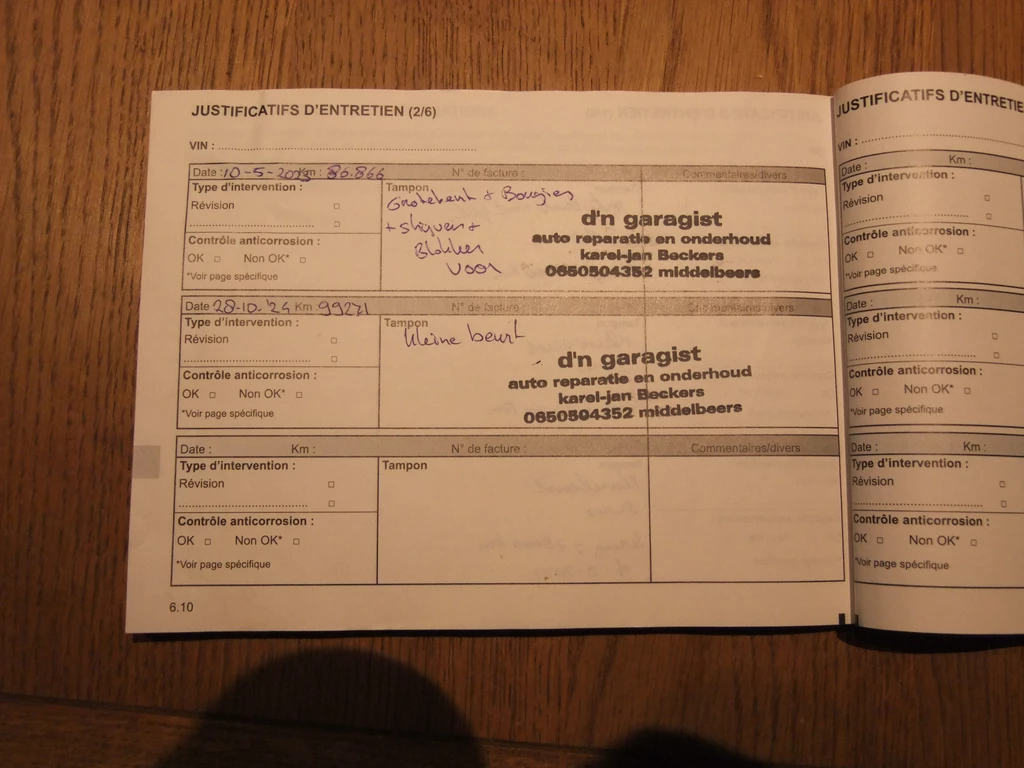 JUSTIFICATIFS D'ENTRETIEN (2/6)
VIN :
Date : 10-5-2023 Km : 86.866 N° de facture : Commentaires/divers
Type d'intervention : Tampon
Grote beurt + Bougies
Révision
+ schijven +
Blokken
Voor
d'n garagist
auto reparatie en onderhoud
karel-jan Beckers
0650504352 middelbeers
Contrôle anticorrosion :
OK Non OK*
*Voir page spécifique
Date 28-10-'24 Km : 99271 N° de facture : Commentaires/divers
Type d'intervention : Tampon
kleine beurt
Révision
d'n garagist
auto reparatie en onderhoud
karel-jan Beckers
0650504352 middelbeers
Contrôle anticorrosion :
OK Non OK*
*Voir page spécifique
Date : Km : N° de facture : Commentaires/divers
Type d'intervention : Tampon
Révision
Contrôle anticorrosion :
OK Non OK*
*Voir page spécifique
6.10
JUSTIFICATIFS D'ENTRETIE
VIN :
Date : Km :
Type d'intervention :
Révision
Contrôle anticorrosion :
OK Non OK*
*Voir page spécifique
Date : Km :
Type d'intervention :
Révision
Contrôle anticorrosion :
OK Non OK*
*Voir page spécifique
Date : Km :
Type d'intervention :
Révision
Contrôle anticorrosion :
OK Non OK*
*Voir page spécifique